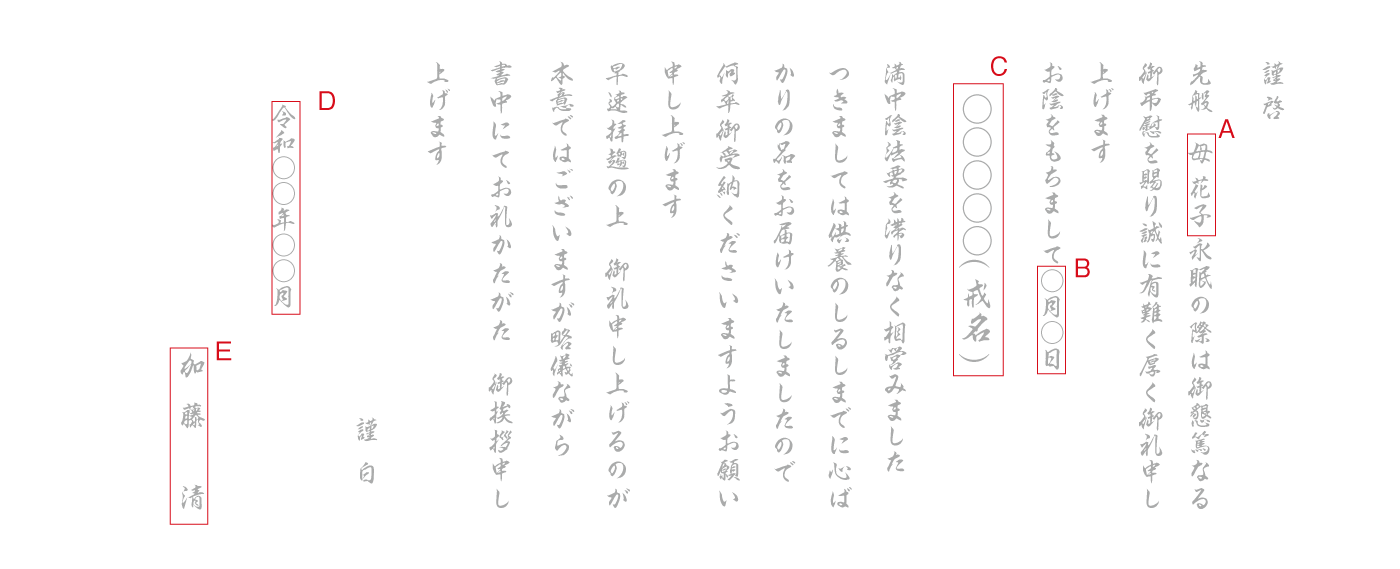 謹啓
先般 母 花子 永眠の際は御懇篤なる
A
御弔慰を賜り誠に有難く厚く御礼申し
上げます
お陰をもちまして〇月〇日
B
〇〇〇〇〇(戒名)
C
満中陰法要を滞りなく相営みました
つきましては供養のしるしまでに心ば
かりの品をお届けいたしましたので
何卒御受納くださいますようお願い
申し上げます
早速拝趨の上 御礼申し上げるのが
本意ではございますが略儀ながら
書中にてお礼かたがた 御挨拶申し
上げます
謹白
令和〇〇年〇〇月
D
加藤 清
E